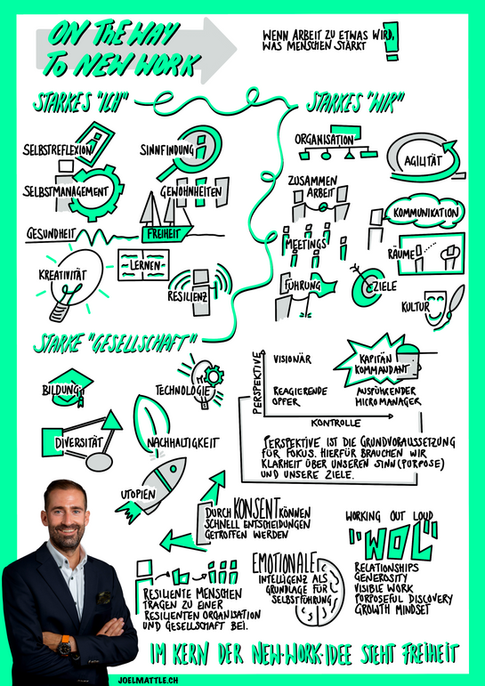 ON THE WAY
TO NEW WORK
WENN ARBEIT ZU ETWAS WIRD,
WAS MENSCHEN STÄRKT !
STARKES "ICH"
STARKES "WIR"
SELBSTREFLEXION
SINNFINDUNG
SELBSTMANAGEMENT
GEWOHNHEITEN
GESUNDHEIT
FREIHEIT
KREATIVITÄT
LERNEN
RESILIENZ
ORGANISATION
AGILITÄT
ZUSAMMEN
ARBEIT
KOMMUNIKATION
MEETINGS
RÄUME
FÜHRUNG
ZIELE
KULTUR
STARKE "GESELLSCHAFT"
BILDUNG
TECHNOLOGIE
DIVERSITÄT
NACHHALTIGKEIT
UTOPIEN
PERSPEKTIVE
VISIONÄR
KAPITÄN
KOMMANDANT
REAGIERENDE
OPFER
AUSFÜHRENDER
MICROMANAGER
KONTROLLE
PERSPEKTIVE IST DIE GRUNDVORAUSSETZUNG
FÜR FOKUS. HIERFÜR BRAUCHEN WIR
KLARHEIT ÜBER UNSEREN SINN (PURPOSE)
UND UNSERE ZIELE.
DURCH KONSENT KÖNNEN
SCHNELL ENTSCHEIDUNGEN
GETROFFEN WERDEN
RESILIENTE MENSCHEN
TRAGEN ZU EINER
RESILIENTEN ORGANISATION
UND GESELLSCHAFT BEI.
EMOTIONALE
INTELLIGENZ ALS
GRUNDLAGE FÜR
SELBSTFÜHRUNG
WORKING OUT LOUD
"WOL"
RELATIONSHIPS
GENEROSITY
VISIBLE WORK
PORPOSEFUL DISCOVERY
GROWTH MINDSET
IM KERN DER NEW-WORK-IDEE STEHT FREIHEIT
JOELMATTLE.CH